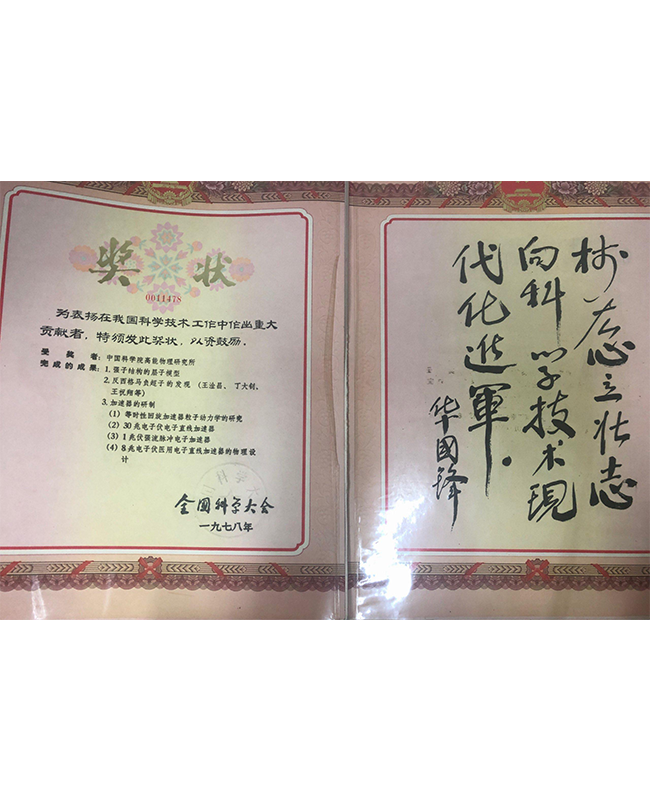 奖状
0011478
为表扬在我国科学技术工作中作出重大
贡献者，特颁发此奖状，以资鼓励。
受奖者：中国科学院高能物理研究所
完成的成果：1. 强子结构的层子模型
2. 反西格马负超子的发现（王淦昌、丁大钊、
王祝翔等）
3. 加速器的研制
（1）等时性回旋加速器粒子动力学的研究
（2）30兆电子伏电子直线加速器
（3）1兆伏强流脉冲电子加速器
（4）8兆电子伏医用电子直线加速器的物理设
计
全国科学大会
一九七八年
树雄心立壮志
向科学技术現
代化進軍。
华國锋